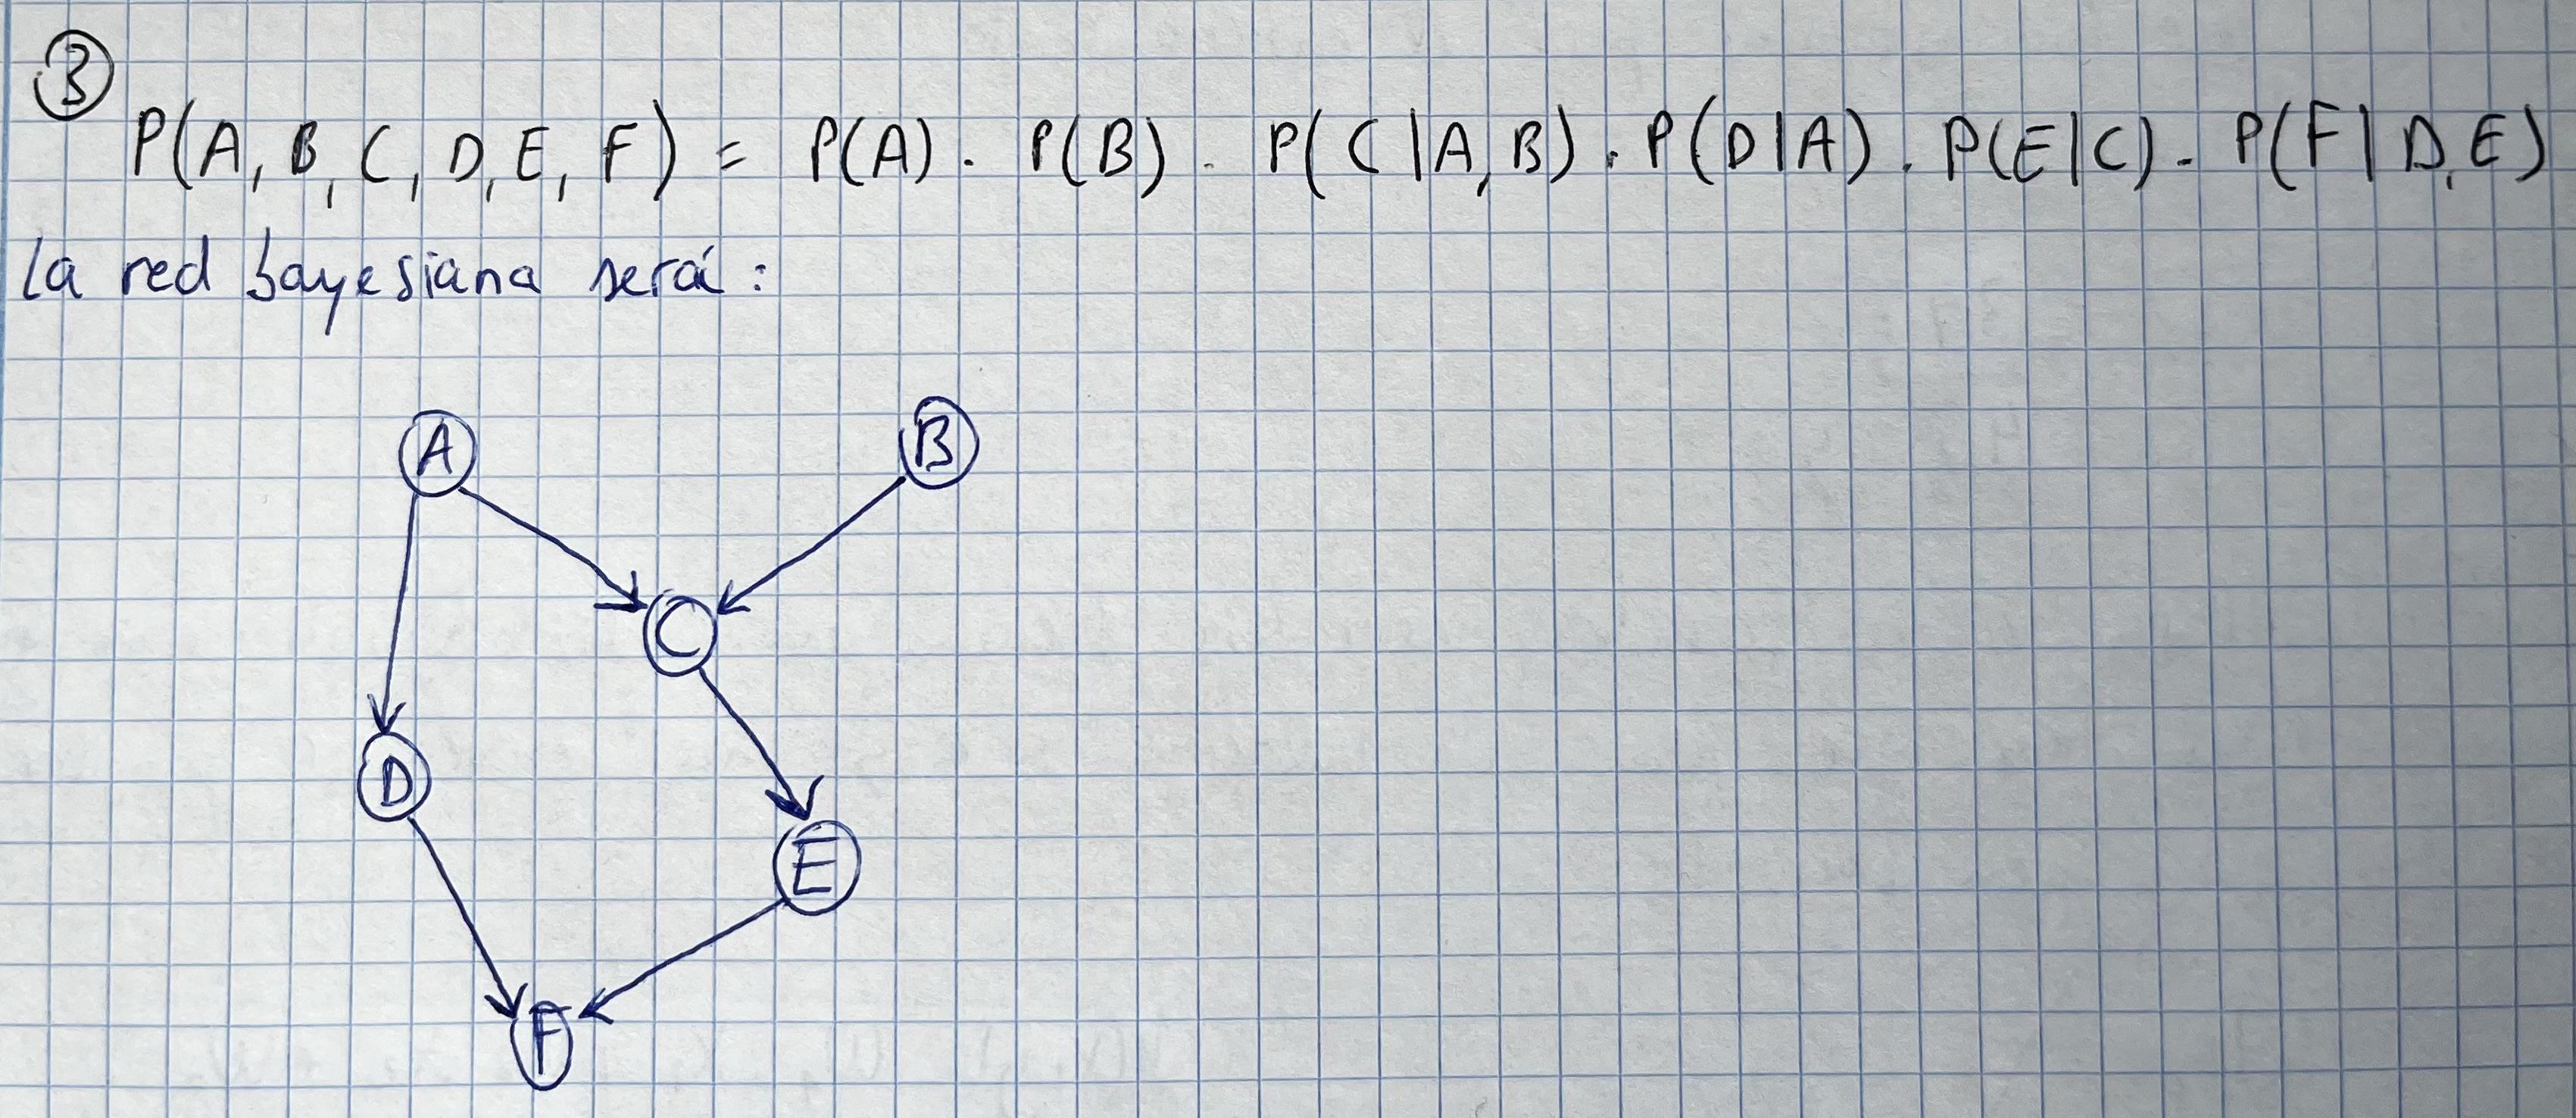 3
P(A, B, C, D, E, F) = P(A) . P(B) . P(C|A,B) . P(D|A) . P(E|C) . P(F|D,E)
la red bayesiana será:
A B
C
D
E
F